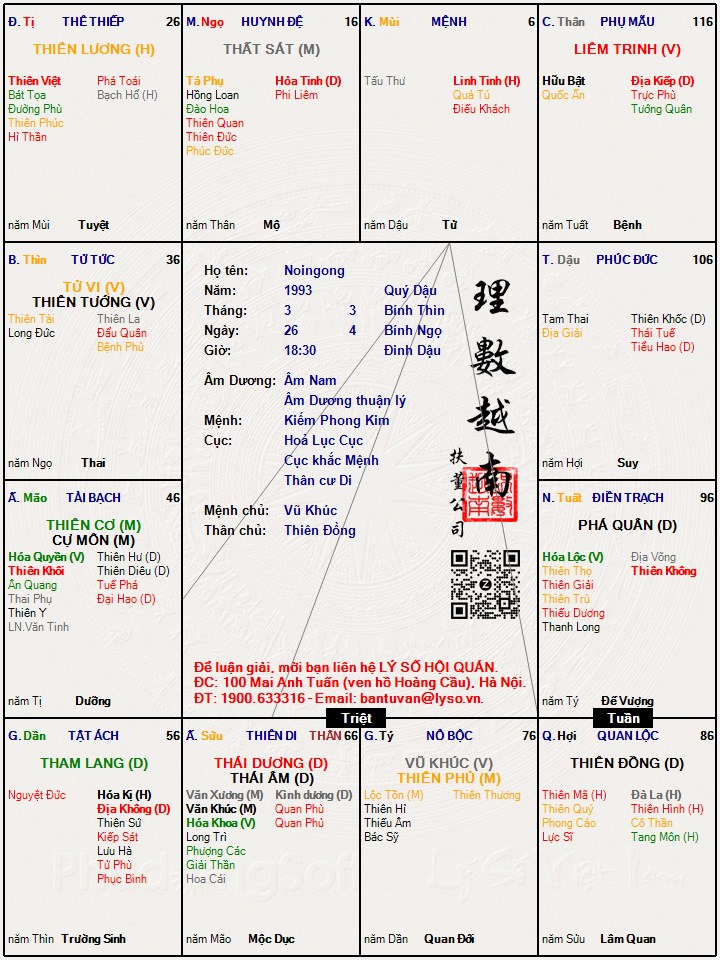 Đ. Tị THÊ THIẾP 26
THIÊN LƯƠNG (H)
Thiên Việt Phá Toái
Bát Tọa Bạch Hổ (H)
Đường Phù
Thiên Phúc
Hỉ Thần
năm Mùi Tuyệt
M. Ngọ HUYNH ĐỆ 16
THẤT SÁT (M)
Tả Phụ Hỏa Tinh (D)
Hồng Loan Phi Liêm
Đào Hoa
Thiên Quan
Thiên Đức
Phúc Đức
năm Thân Mộ
K. Mùi MỆNH 6
Tấu Thư Linh Tinh (H)
Quả Tú
Điếu Khách
năm Dậu Tử
C. Thân PHỤ MẪU 116
LIÊM TRINH (V)
Hữu Bật Địa Kiếp (D)
Quốc Ấn Trực Phù
Tướng Quân
năm Tuất Bệnh
B. Thìn TỬ TỨC 36
TỬ VI (V)
THIÊN TƯỚNG (V)
Thiên Tài Thiên La
Long Đức Đẩu Quân
Bệnh Phù
năm Ngọ Thai
Họ tên: Noingong
Năm: 1993 Quý Dậu
Tháng: 3 3 Bính Thìn
Ngày: 26 4 Bính Ngọ
Giờ: 18:30 Đinh Dậu
Âm Dương: Âm Nam
Âm Dương thuận lý
Mệnh: Kiếm Phong Kim
Cục: Hoả Lục Cục
Cục khắc Mệnh
Thân cư Di
Mệnh chủ: Vũ Khúc
Thân chủ: Thiên Đồng
理數越南
扶董公司
Để luận giải, mời bạn liên hệ LÝ SỐ HỘI QUÁN.
ĐC: 100 Mai Anh Tuấn (ven hồ Hoàng Cầu), Hà Nội.
ĐT: 1900.633316 - Email: bantuvan@lyso.vn.
T. Dậu PHÚC ĐỨC 106
Tam Thai Thiên Khốc (D)
Địa Giải Thái Tuế
Tiểu Hao (D)
năm Hợi Suy
Ấ. Mão TÀI BẠCH 46
THIÊN CƠ (M)
CỰ MÔN (M)
Hóa Quyền (V) Thiên Hư (D)
Thiên Khôi Thiên Diêu (D)
Ân Quang Tuế Phá
Thai Phụ Đại Hao (D)
Thiên Y
LN.Văn Tinh
năm Tị Dưỡng
N. Tuất ĐIỀN TRẠCH 96
PHÁ QUÂN (D)
Hóa Lộc (V) Địa Võng
Thiên Thọ Thiên Không
Thiên Giải
Thiên Trù
Thiếu Dương
Thanh Long
năm Tý Đế Vượng
Triệt
Tuần
G. Dần TẬT ÁCH 56
THAM LANG (D)
Nguyệt Đức Hóa Kị (H)
Địa Không (D)
Thiên Sứ
Kiếp Sát
Lưu Hà
Tử Phù
Phục Binh
năm Thìn Trường Sinh
Ấ. Sửu THIÊN DI THÂN 66
THÁI DƯƠNG (D)
THÁI ÂM (D)
Văn Xương (M) Kình dương (D)
Văn Khúc (M) Quan Phù
Hóa Khoa (V) Quan Phủ
Long Trì
Phượng Các
Giải Thần
Hoa Cái
năm Mão Mộc Dục
G. Tý NÔ BỘC 76
VŨ KHÚC (V)
THIÊN PHỦ (M)
Lộc Tồn (M) Thiên Thương
Thiên Hỉ
Thiếu Âm
Bác Sỹ
năm Dần Quan Đới
Q. Hợi QUAN LỘC 86
THIÊN ĐỒNG (D)
Thiên Mã (H) Đà La (H)
Thiên Quý Thiên Hình (H)
Phong Cáo Cô Thần
Lực Sĩ Tang Môn (H)
năm Sửu Lâm Quan